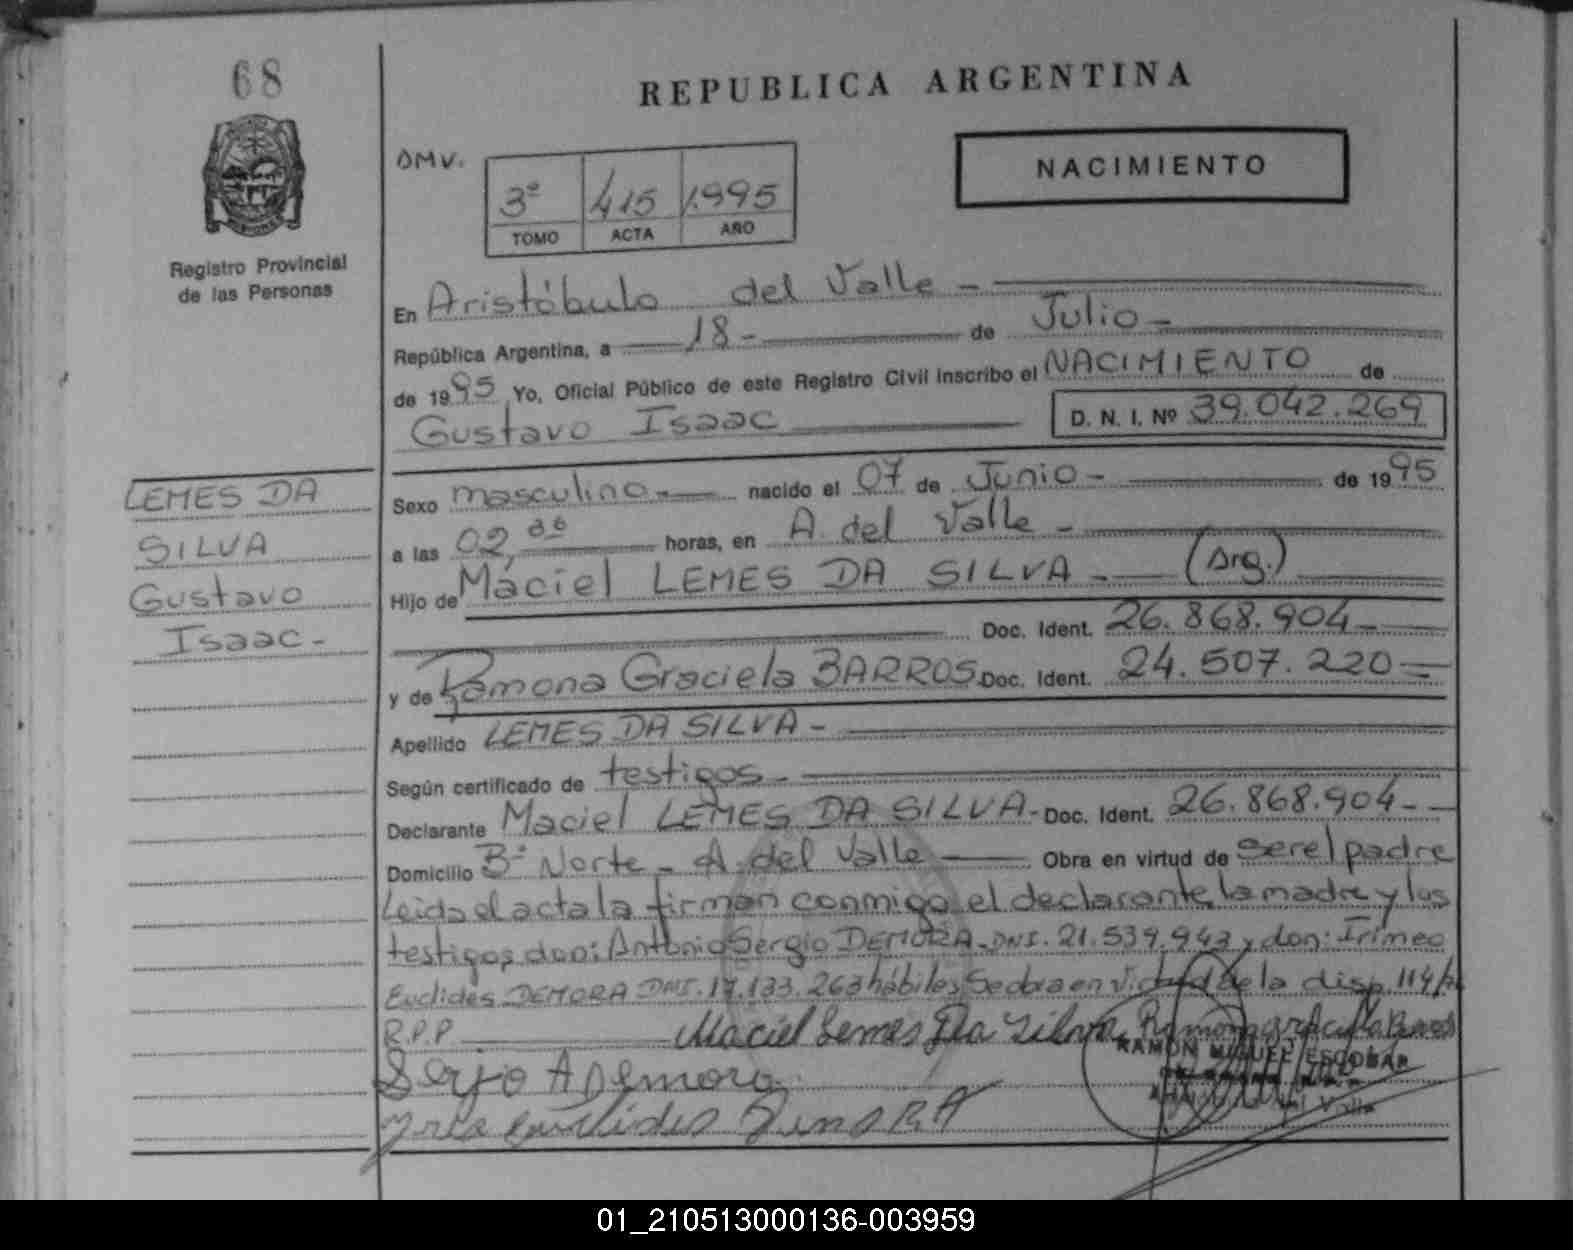 68
REPUBLICA ARGENTINA
OMV.
NACIMIENTO
3º 415 1.995
TOMO ACTA AÑO
Registro Provincial
de las Personas
En Aristóbulo del Valle -
República Argentina, a 18- de Julio -
de 1995 Yo, Oficial Público de este Registro Civil inscribo el NACIMIENTO de
Gustavo Isaac D. N. I. Nº 39.042.269
LEMES DA
SILVA
Gustavo
Isaac -
Sexo masculino - nacido el 07 de Junio - de 1995
a las 02,30 horas, en A. del Valle -
Hijo de Maciel LEMES DA SILVA - (Arg.)
Doc. Ident. 26.868.904 -
y de Ramona Graciela BARROS Doc. Ident. 24.507.220
Apellido LEMES DA SILVA -
Según certificado de testigos -
Declarante Maciel LEMES DA SILVA - Doc. Ident. 26.868.904 -
Domicilio Bº Norte - A. del Valle Obra en virtud de ser el padre
Leida el acta la firman conmigo el declarante, la madre y los
testigos don: Antonio Sergio DEMORA - DNI. 21.539.943 y don: Irimeo
Euclides DEMORA DNI. 17.133.263 hábiles Se obra en virtud de la disp. 114/
R.P.P. Maciel Lemes Da Silva Ramona graciela Barros
Sergio A Demora
Euclides DemoRA
RAMON MIGUEL ESCOBAR
del Valle
01_210513000136-003959